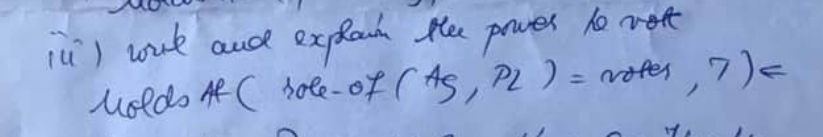 iii) write and explain the power to vote
Holds At ( role-of ( Ag, P2 ) = voter, 7 ) ⇐